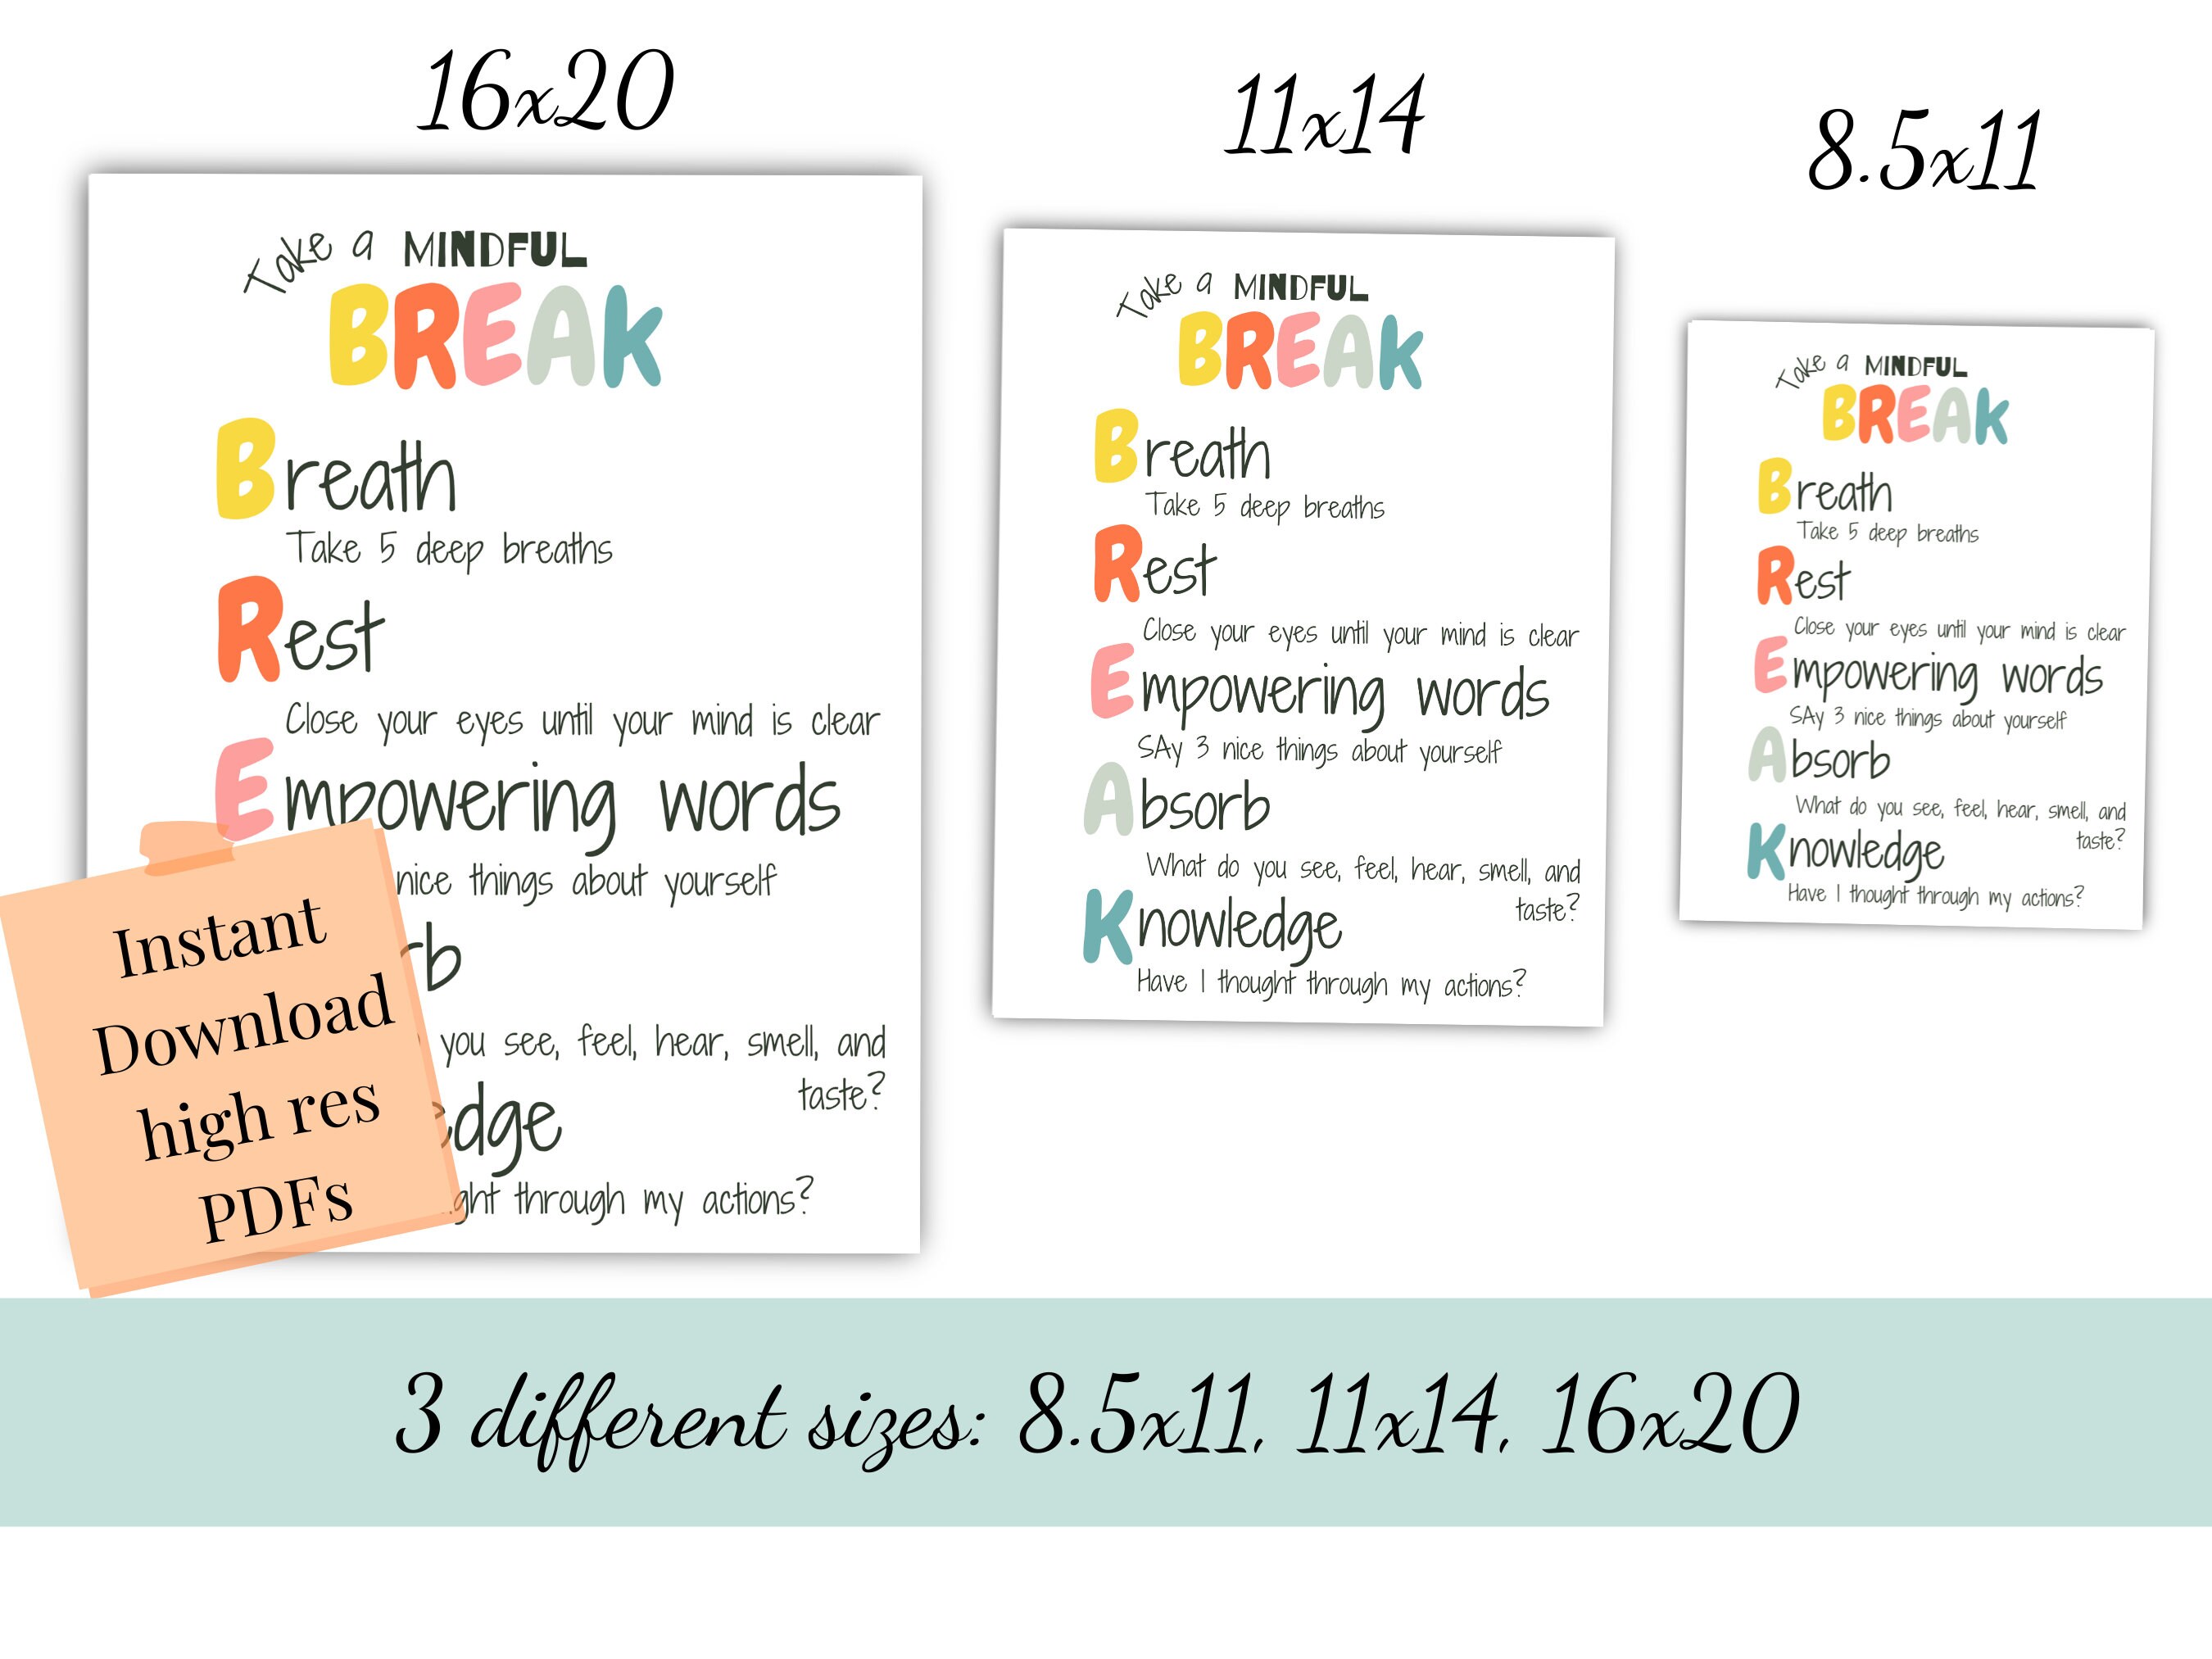 16x20
Take a MINDFUL
BREAK
Breath
Take 5 deep breaths
Rest
Close your eyes until your mind is clear
Empowering words
nice things about yourself
rb
you see, feel, hear, smell, and
taste?
edge
ght through my actions?
Instant
Download
high res
PDFs
11x14
Take a MINDFUL
BREAK
Breath
Take 5 deep breaths
Rest
Close your eyes until your mind is clear
Empowering words
SAy 3 nice things about yourself
Absorb
What do you see, feel, hear, smell, and
taste?
Knowledge
Have I thought through my actions?
8.5x11
Take a MINDFUL
BREAK
Breath
Take 5 deep breaths
Rest
Close your eyes until your mind is clear
Empowering words
SAy 3 nice things about yourself
Absorb
What do you see, feel, hear, smell, and
taste?
Knowledge
Have I thought through my actions?
3 different sizes: 8.5x11, 11x14, 16x20